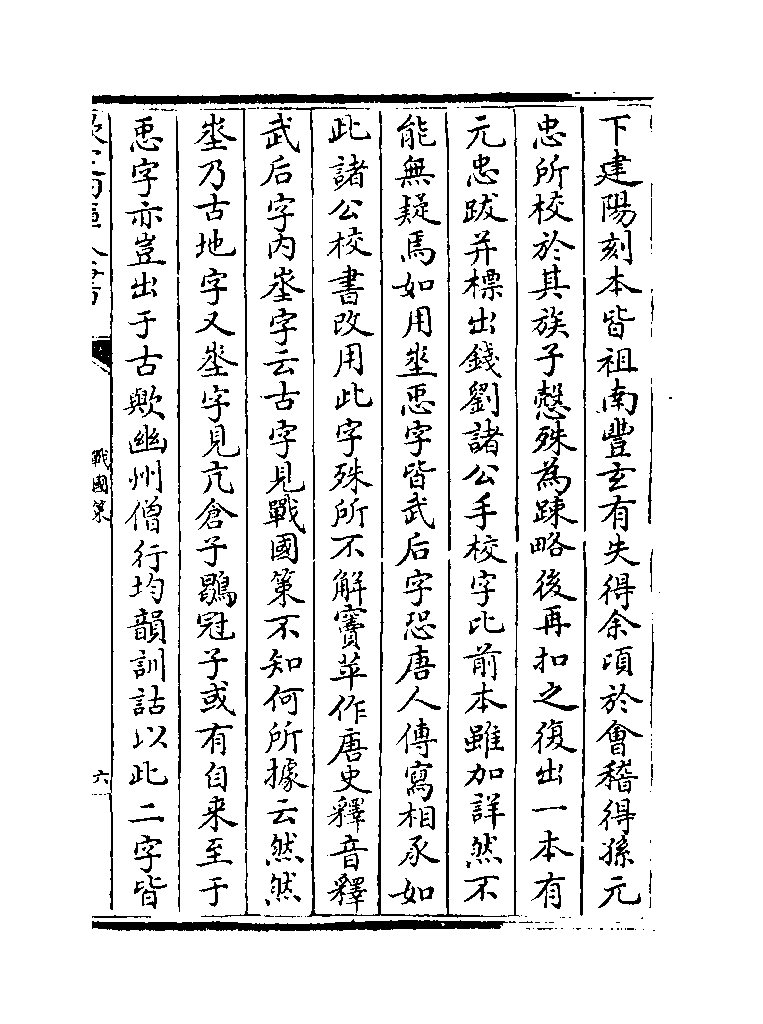 下建陽刻本皆祖南豐玄有失得余頃於會稽得孫元
忠所校於其族子慤殊為踈略後再扣之復出一本有
元忠跋并標出錢劉諸公手校字比前本雖加詳然不
能無疑焉如用埊恧字皆武后字恐唐人傳寫相承如
此諸公校書改用此字殊所不解竇苹作唐史釋音釋
武后字内埊字云古字見戰國策不知何所據云然然
埊乃古地字又埊字見亢倉子鶡冠子或有自来至于
恧字亦豈出于古歟幽州僧行均韻訓詁以此二字皆
戰國策
六